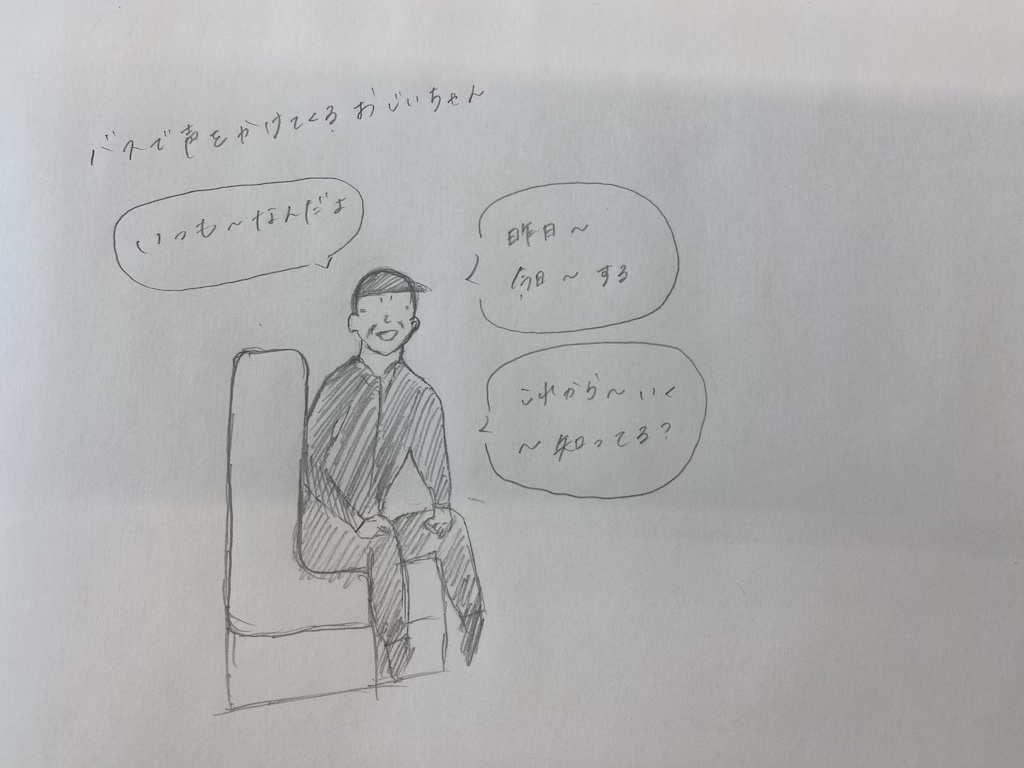 バスで声をかけてくるおじいちゃん
いつも〜なんだよ
昨日〜
今日〜する
これから〜いく
〜知ってる?